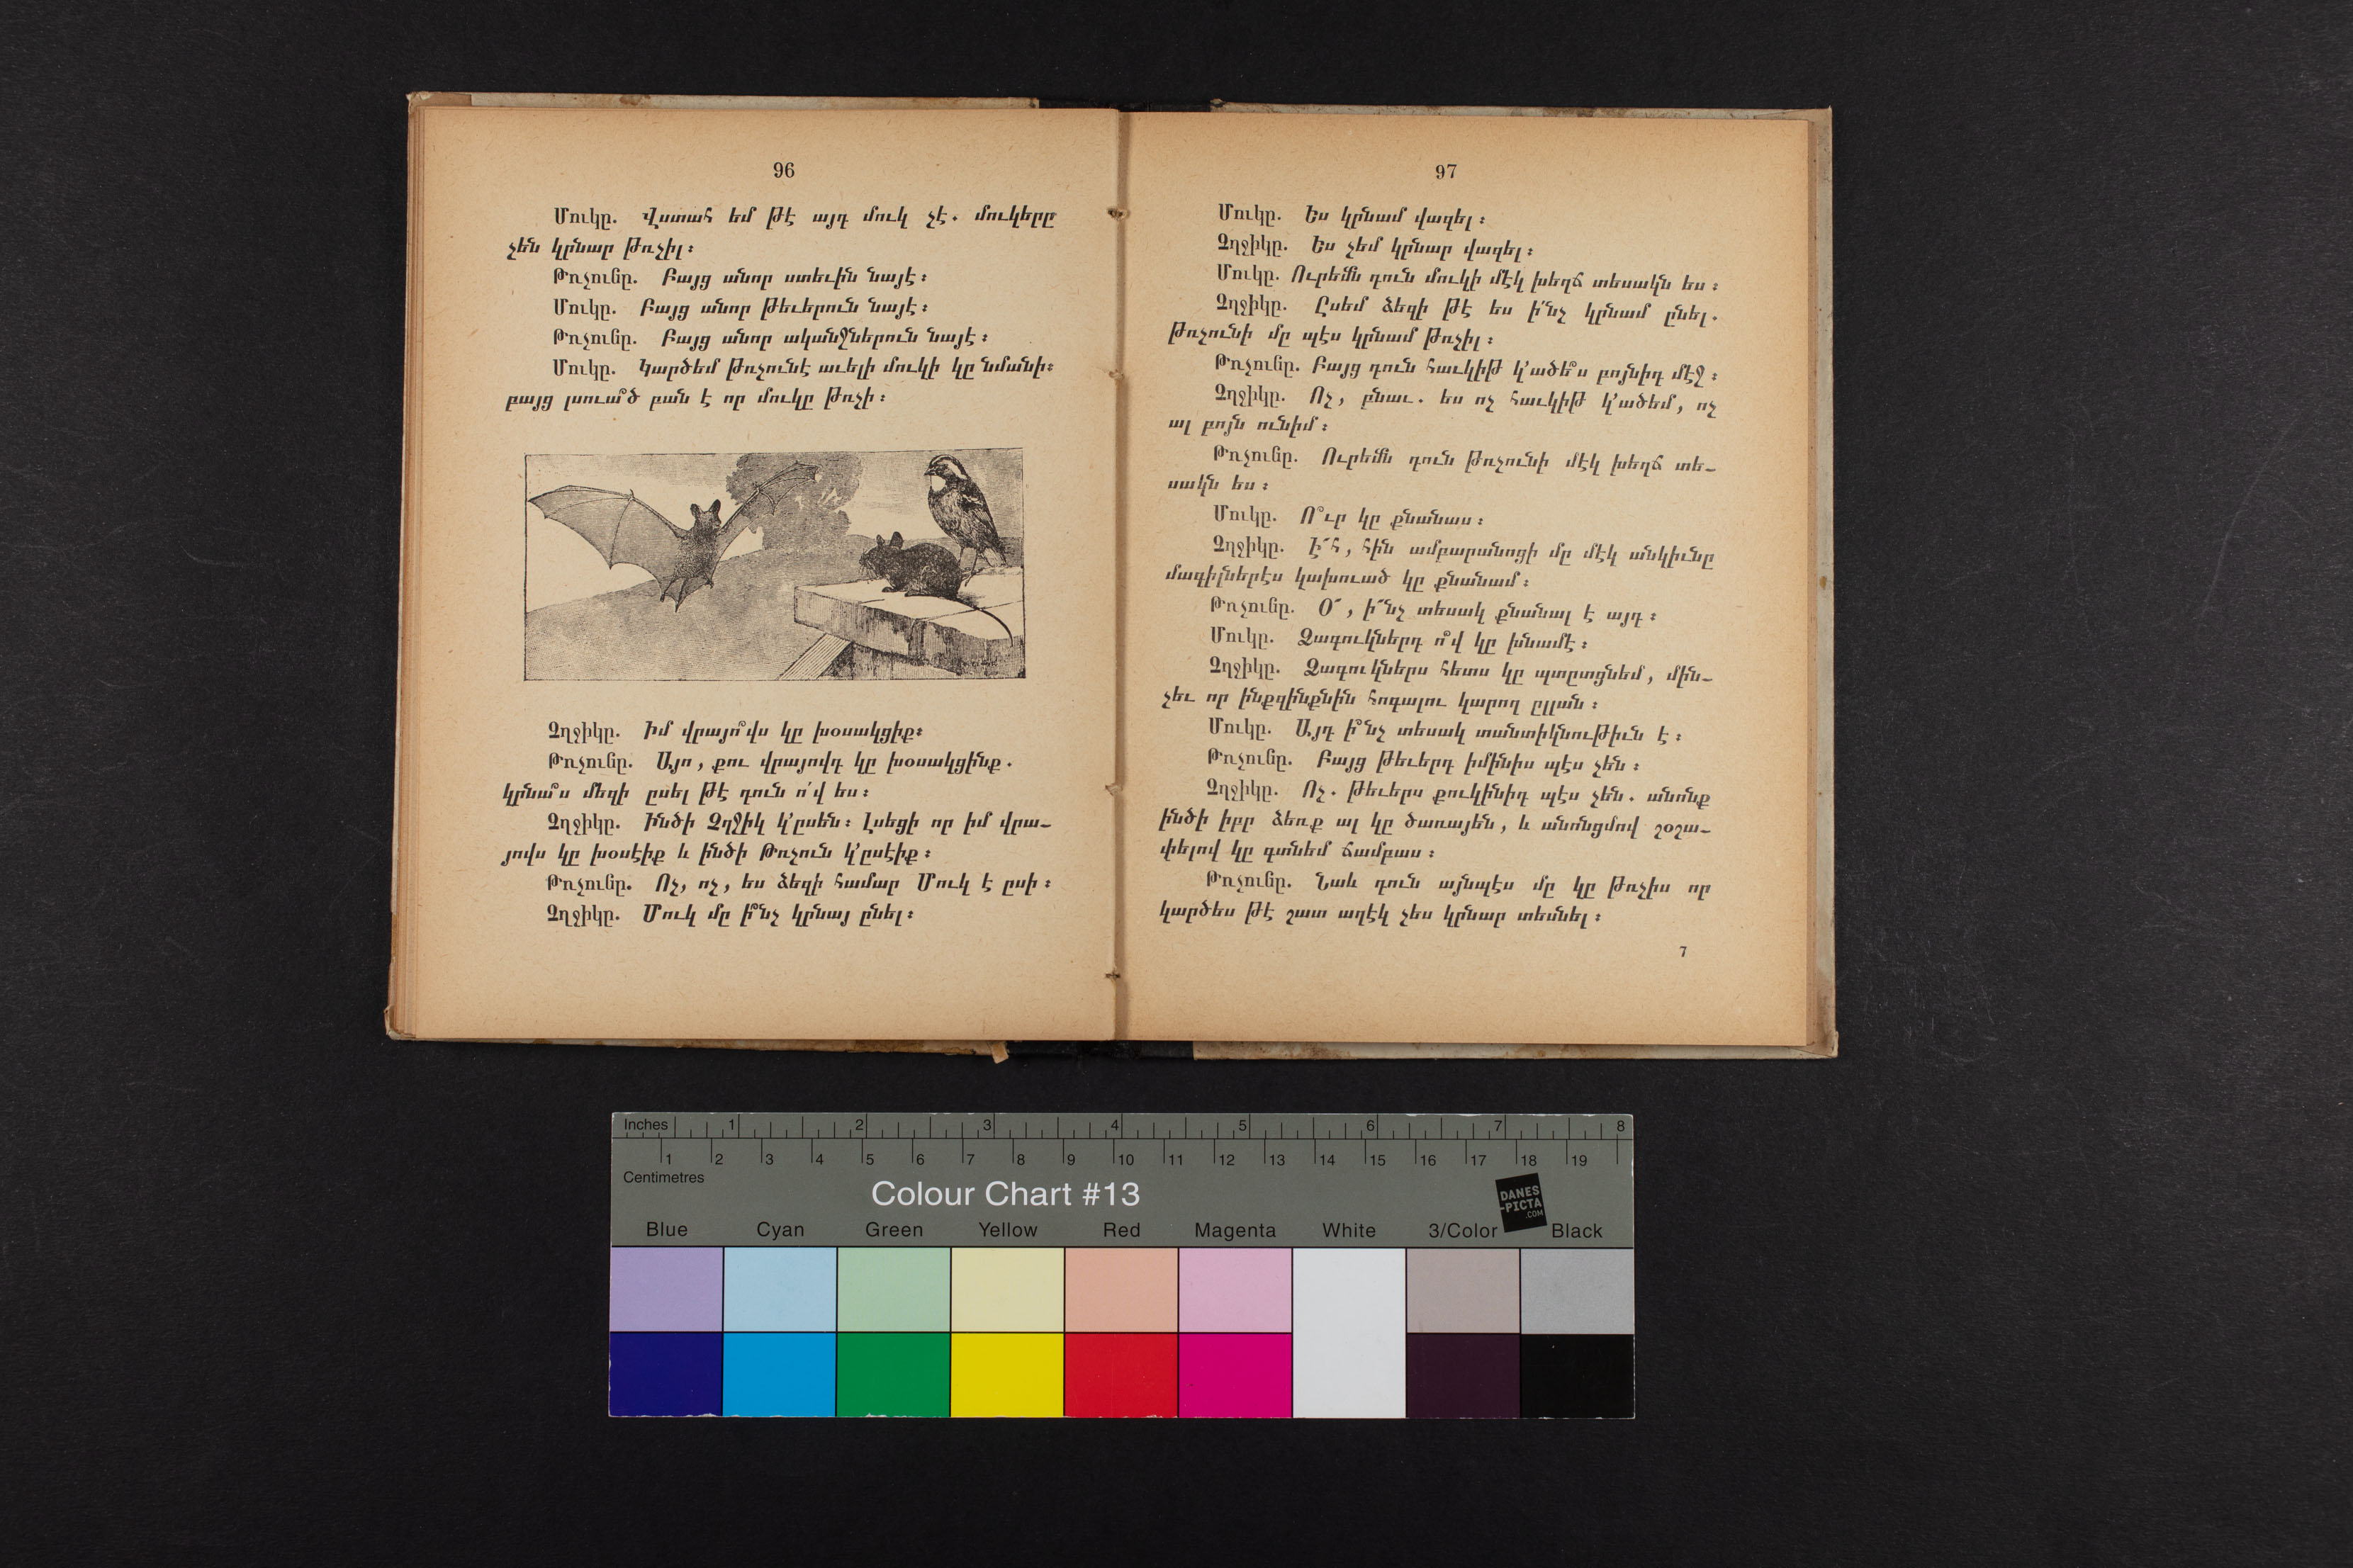 96
Մուկը. Վստահ եմ թէ այդ մուկ չէ. մուկերը
չեն կրնար թռչիլ։
Թռչունը. Բայց անոր ստեւին նայէ։
Մուկը. Բայց անոր թեւերուն նայէ։
Թռչունը. Բայց անոր ականջներուն նայէ։
Մուկը. Կարծեմ թռչունէ աւելի մուկի կը նմանի։
բայց լսուա՞ծ բան է որ մուկը թռչի։
Չղջիկը. Իմ վրայո՞վս կը խօսակցիք։
Թռչունը. Այո, քու վրայովդ կը խօսակցինք.
կրնա՞ս մեզի ըսել թէ դուն ո՛վ ես։
Չղջիկը. Ինծի Չղջիկ կ՚ըսեն։ Լսեցի որ իմ վրա-
յովս կը խօսէիք և ինծի Թռչուն կ՚ըսէիք։
Թռչունը. Ոչ, ոչ, ես ձեզի համար Մուկ է ըսի։
Չղջիկը. Մուկ մը ի՞նչ կրնայ ընել։
97
Մուկը. Ես կրնամ վազել։
Չղջիկը. Ես չեմ կրնար վազել։
Մուկը. Ուրեմն դուն մուկի մէկ խեղճ տեսակն ես։
Չղջիկը. Ըսեմ ձեզի թէ ես ի՛նչ կրնամ ընել.
Թռչունի մը պէս կրնամ թռչիլ։
Թռչունը. Բայց դուն հաւկիթ կ՚ածե՞ս բոյնիդ մէջ։
Չղջիկը. Ոչ, բնաւ. ես ոչ հաւկիթ կ՚ածեմ, ոչ
ալ բոյն ունիմ։
Թռչունը. Ուրեմն դուն թռչունի մէկ խեղճ տե-
սակն ես։
Մուկը. Ո՞ւր կը քնանաս։
Չղջիկը. Է՜հ, հին ամբարանոցի մը մէկ անկիւնը
մագիլներէս կախուած կը քնանամ։
Թռչունը. Օ՜, ի՜նչ տեսակ քնանալ է այդ։
Մուկը. Ձագուկներդ ո՞վ կը խնամէ։
Չղջիկը. Ձագուկներս հետս կը պտըտցնեմ, մին-
չեւ որ ինքզինքնին հոգալու կարող ըլլան։
Մուկը. Այդ ի՞նչ տեսակ տանտիկնութիւն է։
Թռչունը. Բայց թեւերդ իմինիս պէս չեն։
Չղջիկը. Ոչ. թեւերս քուկինիդ պէս չեն. անոնք
ինծի իբր ձեռք ալ կը ծառայեն, և անոնցմով շօշա-
փելով կը գտնեմ ճամբաս։
Թռչունը. Նաև դուն այնպէս մը կը թռչիս որ
կարծես թէ շատ աղէկ չես կրնար տեսնել։
7
Inches 1 2 3 4 5 6 7 8
1 2 3 4 5 6 7 8 9 10 11 12 13 14 15 16 17 18 19
Centimetres
Colour Chart #13
DANES
-PICTA
.COM
Blue Cyan Green Yellow Red Magenta White 3/Color Black